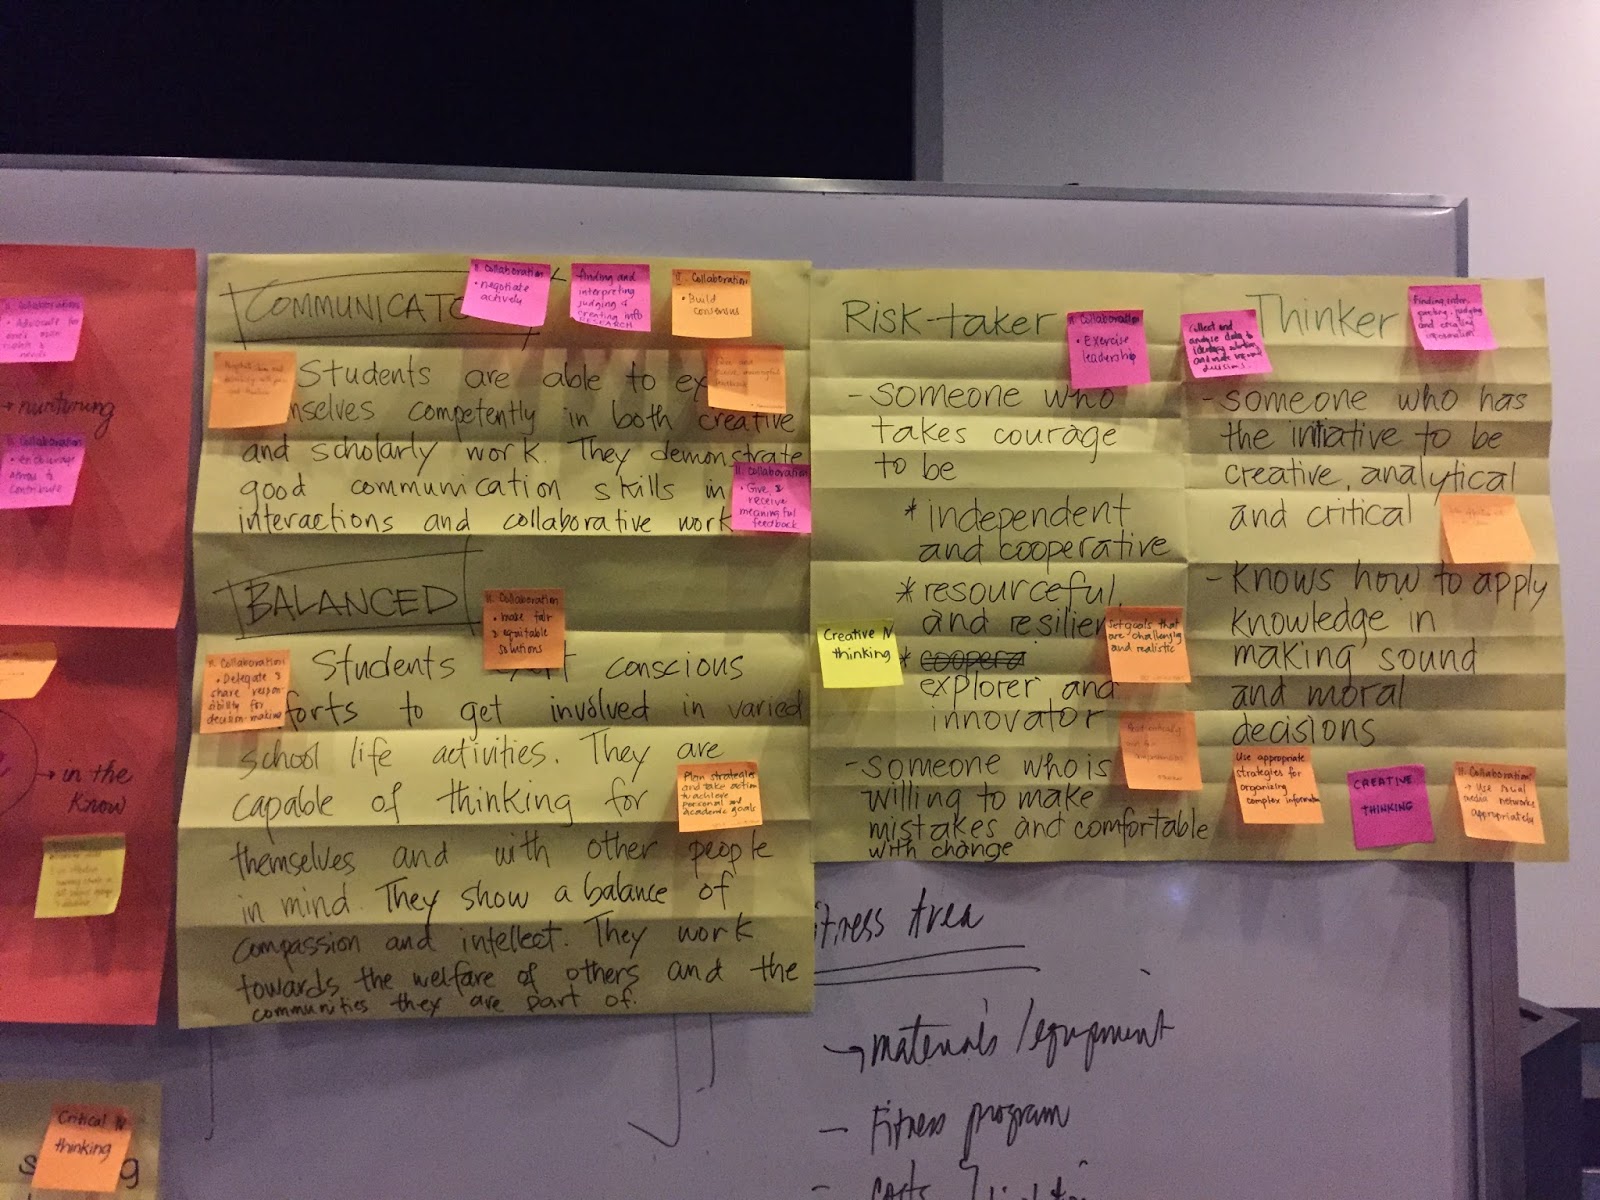 II. Collaboration
• Advocate for
→ nurturing
II. Collaboration
• encourage
others to
contribute
→ in the
know
Critical IV
thinking
COMMUNICATO
II. Collaboration
• negotiate
actively
finding and
interpreting
judging &
creating info
RESEARCH
II. Collaboration
• Build
consensus
Students are able to ex
nselves competently in both creative
and scholarly work. They demonstrate
good communication skills in
interactions and collaborative work
II. Collaboration
• Give &
receive
meaningful
feedback
BALANCED
II. Collaboration
• make fair
& equitable
solutions
II. Collaboration
• Delegate &
share respon-
ibility for
decision-making
Students conscious
forts to get involved in varied
school life activities. They are
capable of thinking for
Plan strategies
and take action
to achieve
personal and
academic goals
themselves and with other people
in mind. They show a balance of
compassion and intellect. They work
towards the welfare of others and the
communities they are part of.
Risk-taker
II. Collaboration
• Exercise
leadership
- someone who
takes courage
to be
* independent
and cooperative
* resourceful,
and resilien
Creative IV
thinking
* coopera
explorer and
innovator
Set goals that
are challenging
and realistic
- someone who is
willing to make
mistakes and comfortable
with change
Collect and
analyse data to
identify solutions
and make informed
decisions.
Thinker
Finding, inter-
preting, judging
and creating
information
- someone who has
the initiative to be
creative, analytical
and critical
- knows how to apply
knowledge in
making sound
and moral
decisions
Use appropriate
strategies for
organizing
complex information
CREATIVE
THINKING
II. Collaboration
→ Use social
media networks
appropriately
itness Area
→ materials/equipment
- Fitness program